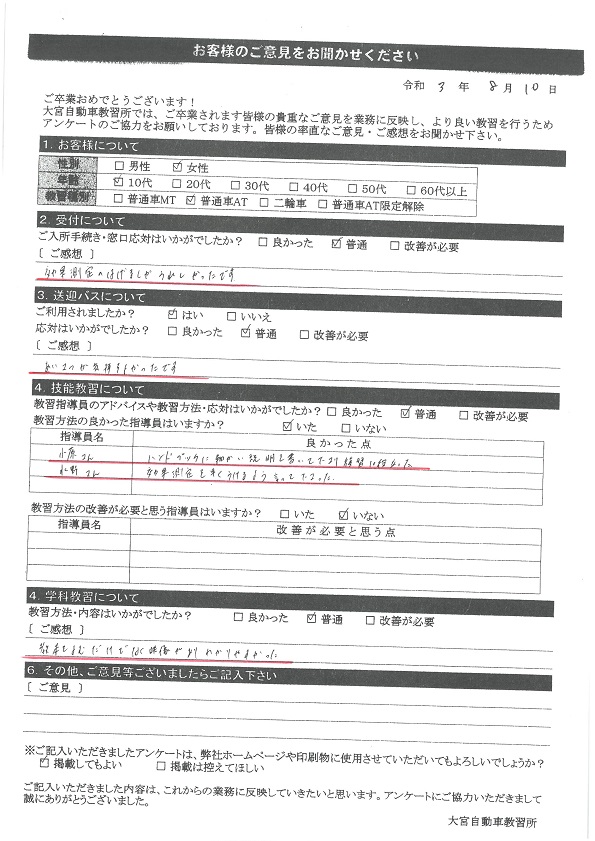 お客様のご意見をお聞かせください
令和 3 年 8 月 10 日
ご卒業おめでとうございます！
大宮自動車教習所では、ご卒業されます皆様の貴重なご意見を業務に反映し、より良い教習を行うため
アンケートのご協力をお願いしております。皆様の率直なご意見・ご感想をお聞かせ下さい。
1. お客様について
性別 □ 男性 ☑ 女性
年齢 ☑ 10代 □ 20代 □ 30代 □ 40代 □ 50代 □ 60代以上
教習種別 □ 普通車MT ☑ 普通車AT □ 二輪車 □ 普通車AT限定解除
2. 受付について
ご入所手続き・窓口応対はいかがでしたか？ □ 良かった ☑ 普通 □ 改善が必要
〔 ご感想 〕
効果測定のはげましがうれしかったです
3. 送迎バスについて
ご利用されましたか？ ☑ はい □ いいえ
応対はいかがでしたか？ □ 良かった ☑ 普通 □ 改善が必要
〔 ご感想 〕
あいさつが気持ちよかったです
4. 技能教習について
教習指導員のアドバイスや教習方法・応対はいかがでしたか？ □ 良かった ☑ 普通 □ 改善が必要
教習方法の良かった指導員はいますか？ ☑ いた □ いない
指導員名 良かった点
小原さん ハンドブックに細かい説明を書いて下さり復習に役立った
さん 効果測定を早くうけるよう言って下さった
教習方法の改善が必要と思う指導員はいますか？ □ いた ☑ いない
指導員名 改善が必要と思う点
4. 学科教習について
教習方法・内容はいかがでしたか？ □ 良かった ☑ 普通 □ 改善が必要
〔 ご感想 〕
教本をよむだけでなく映像があり わかりやすかった
6. その他、ご意見等ございましたらご記入下さい
〔 ご意見 〕
※ご記入いただきましたアンケートは、弊社ホームページや印刷物に使用させていただいてもよろしいでしょうか？
☑ 掲載してもよい □ 掲載は控えてほしい
ご記入いただきました内容は、これからの業務に反映していきたいと思います。アンケートにご協力いただきまして
誠にありがとうございました。
大宮自動車教習所